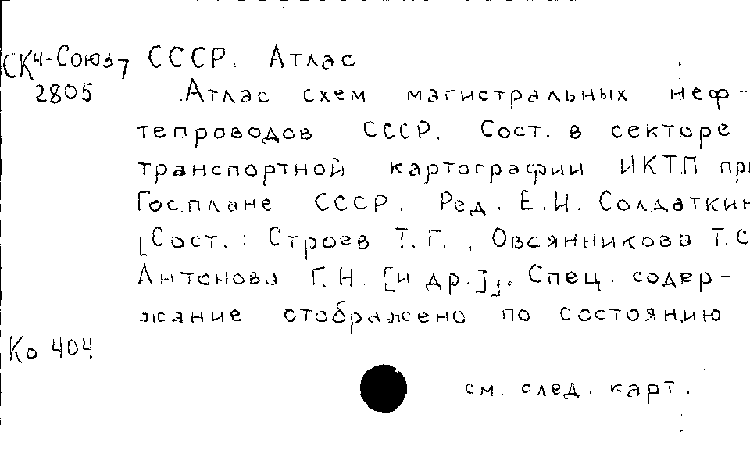 СК4-Союз7 СССР. Атлас
2805 Атлас схем магистральных неф-
тепроводов СССР. Сост. в секторе
транспортной картографии ИКТП при
Госплане СССР. Ред. Е.И. Солдаткин
[Сост.: Строев Т.Г., Овсянникова Т.С
Антонова Г.Н. [и др.]]. Спец. содер-
жание отображено по состоянию
Ко 404
см. след. карт.